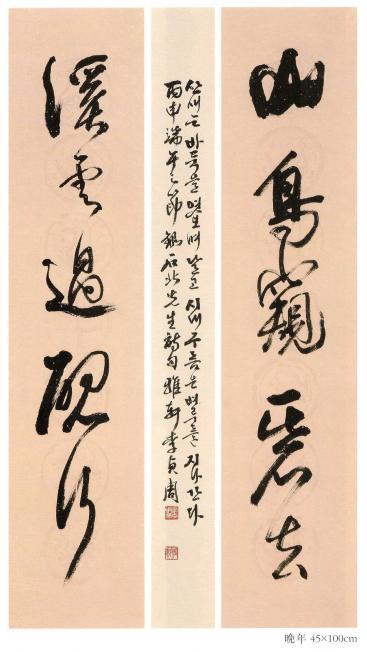 山鳥窺碁去
산새는 바둑을 엿보며 날고 시내 구름은 벼루를 지나간다
丙申端午之節 錄石北先生詩句 雅軒李貞周
溪雲過硯行
晩年 45×100cm